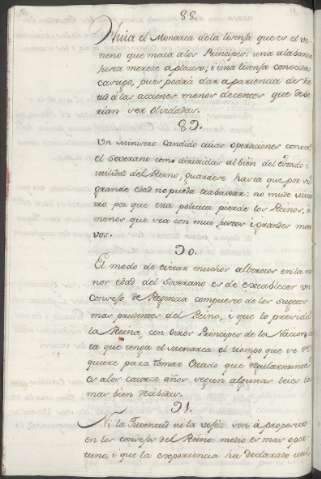 88.
Huia el Monarca de la lisonja que es el ve
neno que mata a los Principes: una alabanza
merece aplauso, i una lisonja conocida
castigo, pues podrá dar apariencia de vir
tud a las acciones menos decentes que debe
rian ser olvidadas.
89.
Un Ministro candido cuias operaciones conoce
el Soberano como dirigidas al bien del Estado i
utilidad del Reino, guardese hasta que por su
grande edad no pueda trabajar: no mude minis
tro por que esta politica pierde los Reinos, a
menos que sea con mui justos i grandes moti
vos.
90.
El modo de evitar muchos alborotos en la me
nor edad del Soberano es de establecer un
consejo de Regencia compuesto de los sugetos
mas prudentes del Reino, i que lo presida
la Reina, con otros Principes de la Nacion
ta que tenga el Monarca el tiempo que se re
quiere para tomar Estado que regularmente
es a los catorce años según algunas
mas bien
91.
Ni la Juventud ni la vejéz son a proposito
en los consejos del Reino medio es mas opor
tuno, i que la experiencia ha declarado